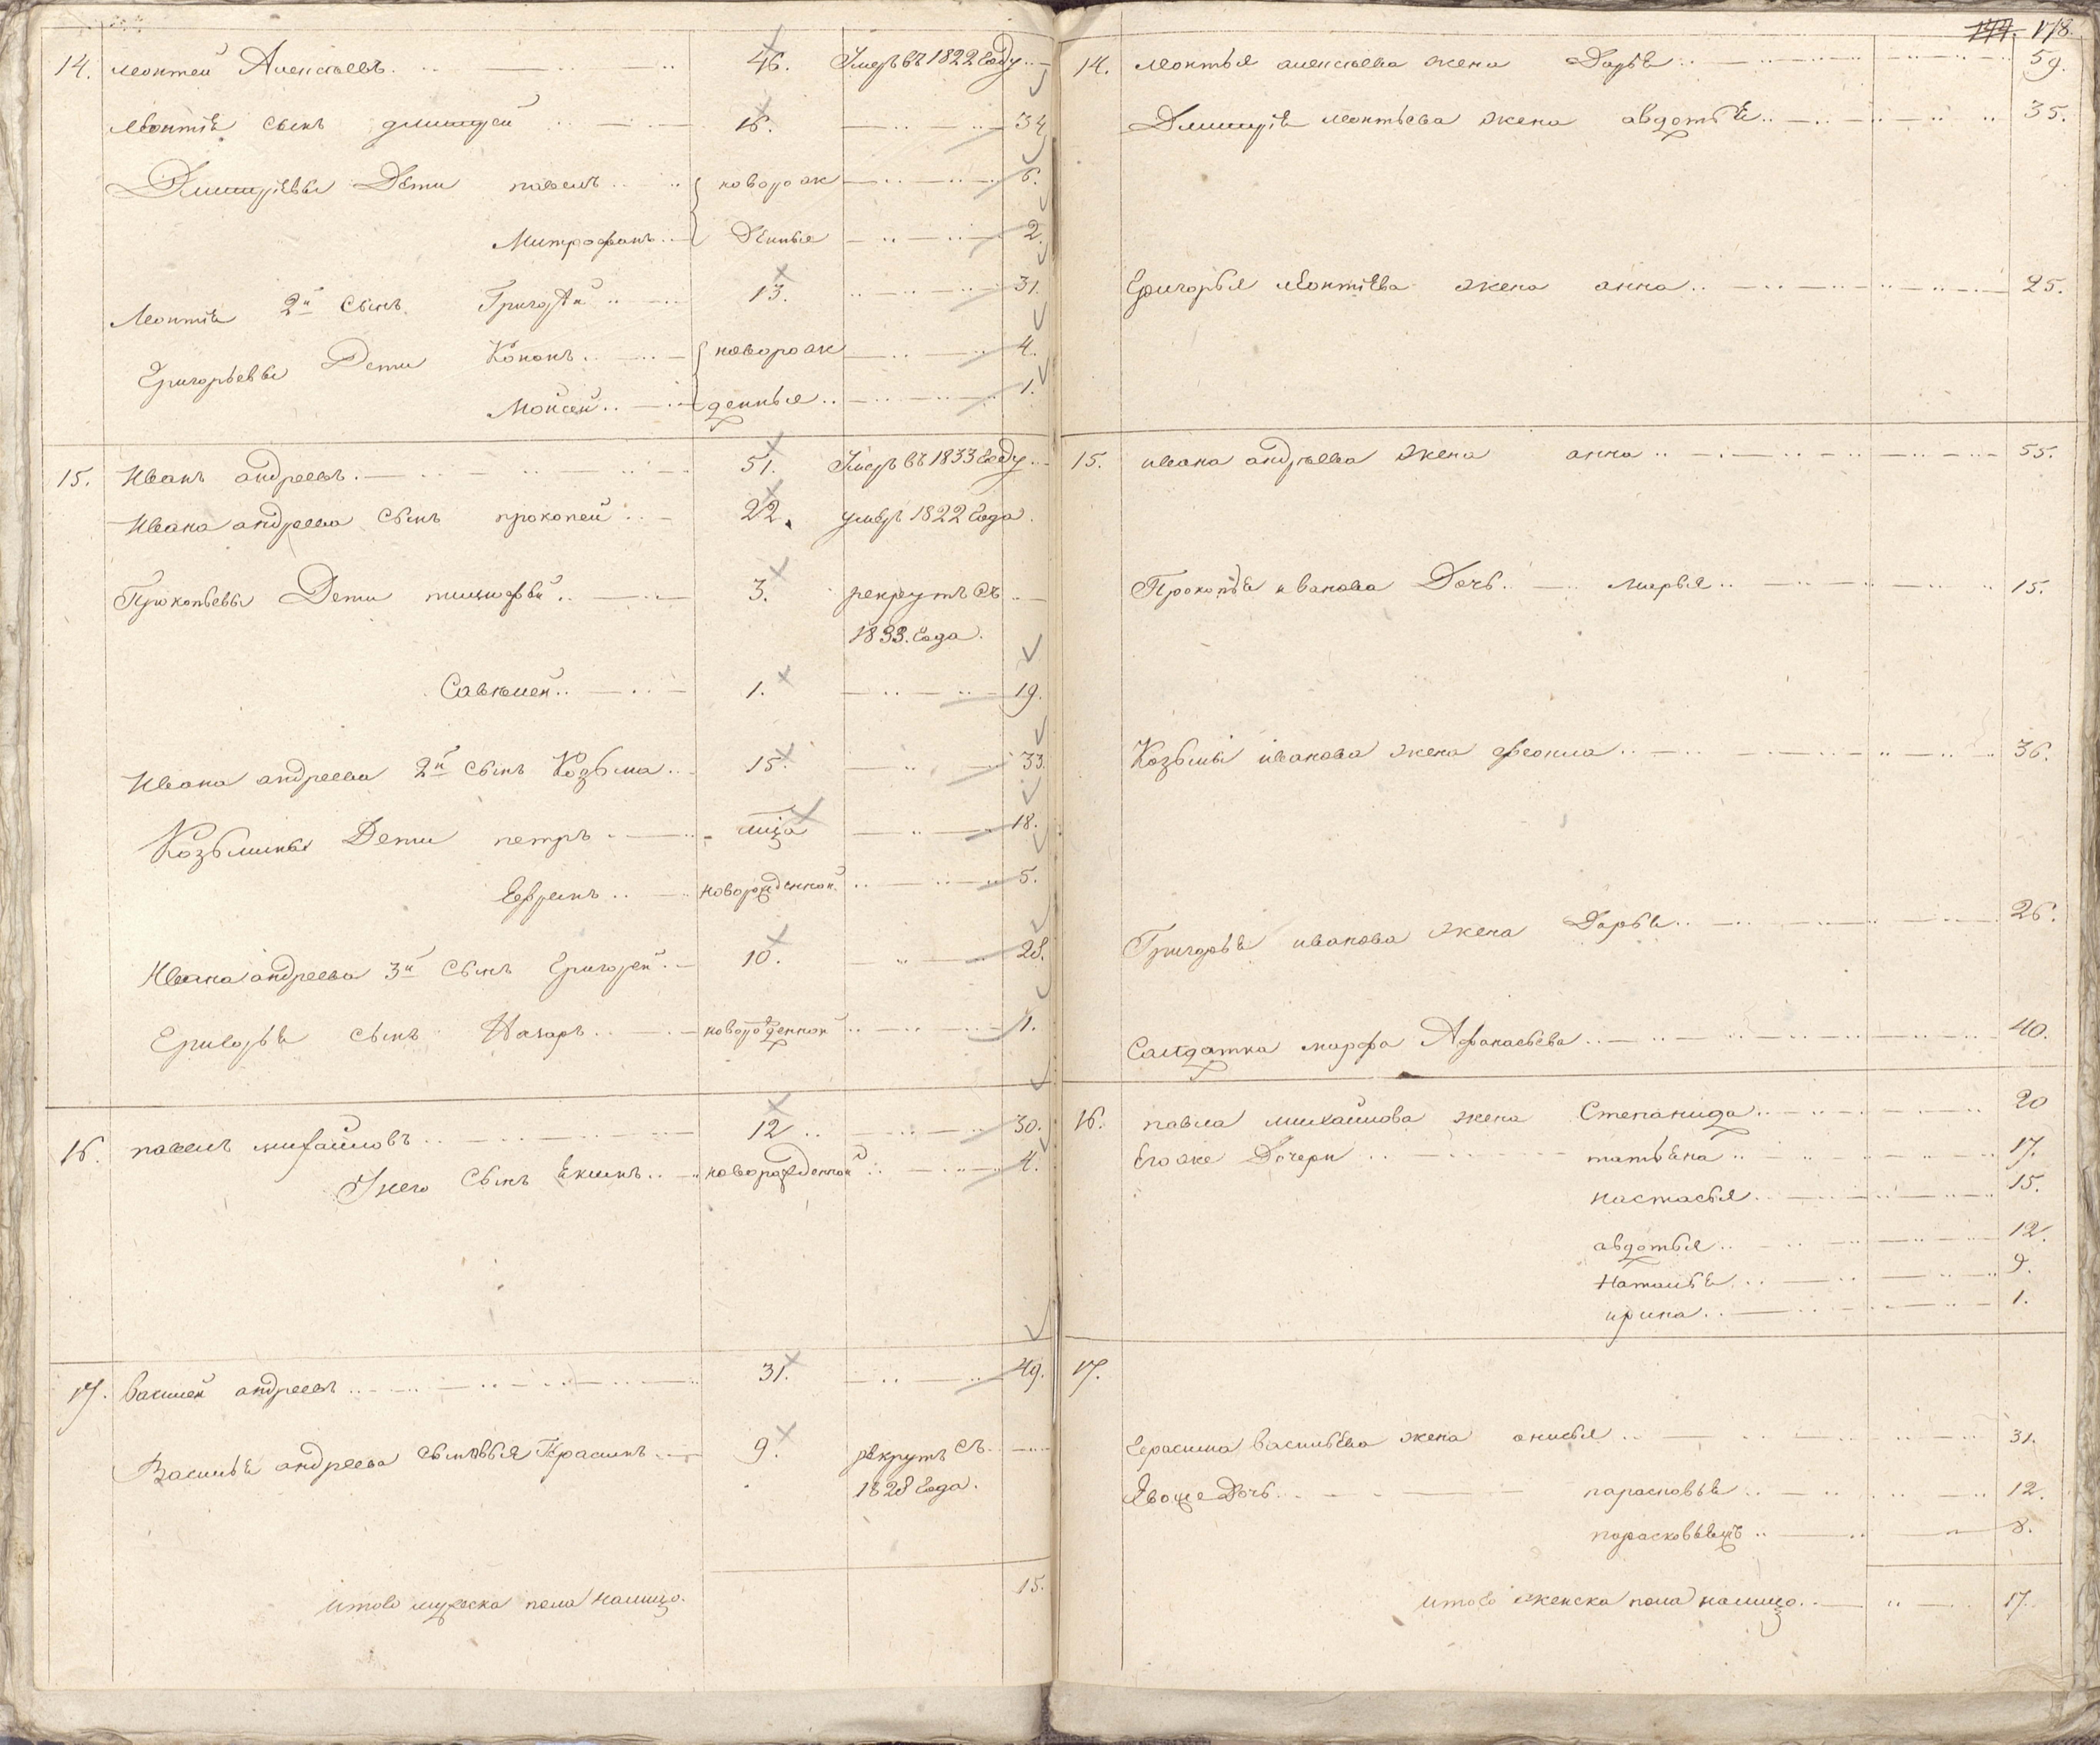 14. Леонтей Алексѣевъ 46. Умеръ въ 1822 Году
Леонтiя сынъ дмитрей 16. 34
Дмитрiевы Дѣти павелъ новорож 6.
Митрофанъ Дѣнныя 2.
Леонтiя 2й сынъ Григорѣй 13. 31.
Григорьевы Дети Кононъ новорож 4.
Мойсей денныя 1.
15. Иванъ андреевъ 51. Умеръ въ 1833 Году
Ивана андреева сынъ прокопей 22. умеръ 1822 Года.
Прокопьевы Дети тимофѣй 3. рекрутъ съ
1833. Года.
Савелей 1. 19.
Ивана андреева 2й сынъ Козьма 15. 33.
Козьмины Дети петръ 18.
Ефремъ новорожденной 5.
Ивана андреева 3й сынъ Григорей 10. 28.
Григорья сынъ Назаръ новорожденной 1.
16. павелъ михайловъ 12 30.
У него сынъ Екимъ новорожденной 4.
17. василей андреевъ 31. 49.
Василья андреева сыновья Герасимъ 9. рекрутъ съ
1828 Года.
итого мужеска пола налицо. 15.
144. 178.
14. Леонтья алексѣева жена Дарья 59.
Дмитрiя леонтьева жена авдотья 35.
Григорья Леонтiева жена анна 25.
15. ивана андреева жена анна 55.
Прокопья иванова Дочь марья 15.
Козьмы иванова жена феокла 36.
Григорья иванова жена Дарья 26.
Салдатка марфа Афанасьева 40.
16. павла михайлова жена Степанида 20
Егоже Дочери татьяна 17.
настасья 15.
авдотья 12.
Наталья 9.
ирина 1.
17.
Герасима васильева жена анисья 31.
Дочь парасковья 12.
8.
итого женска пола налицо. 17.